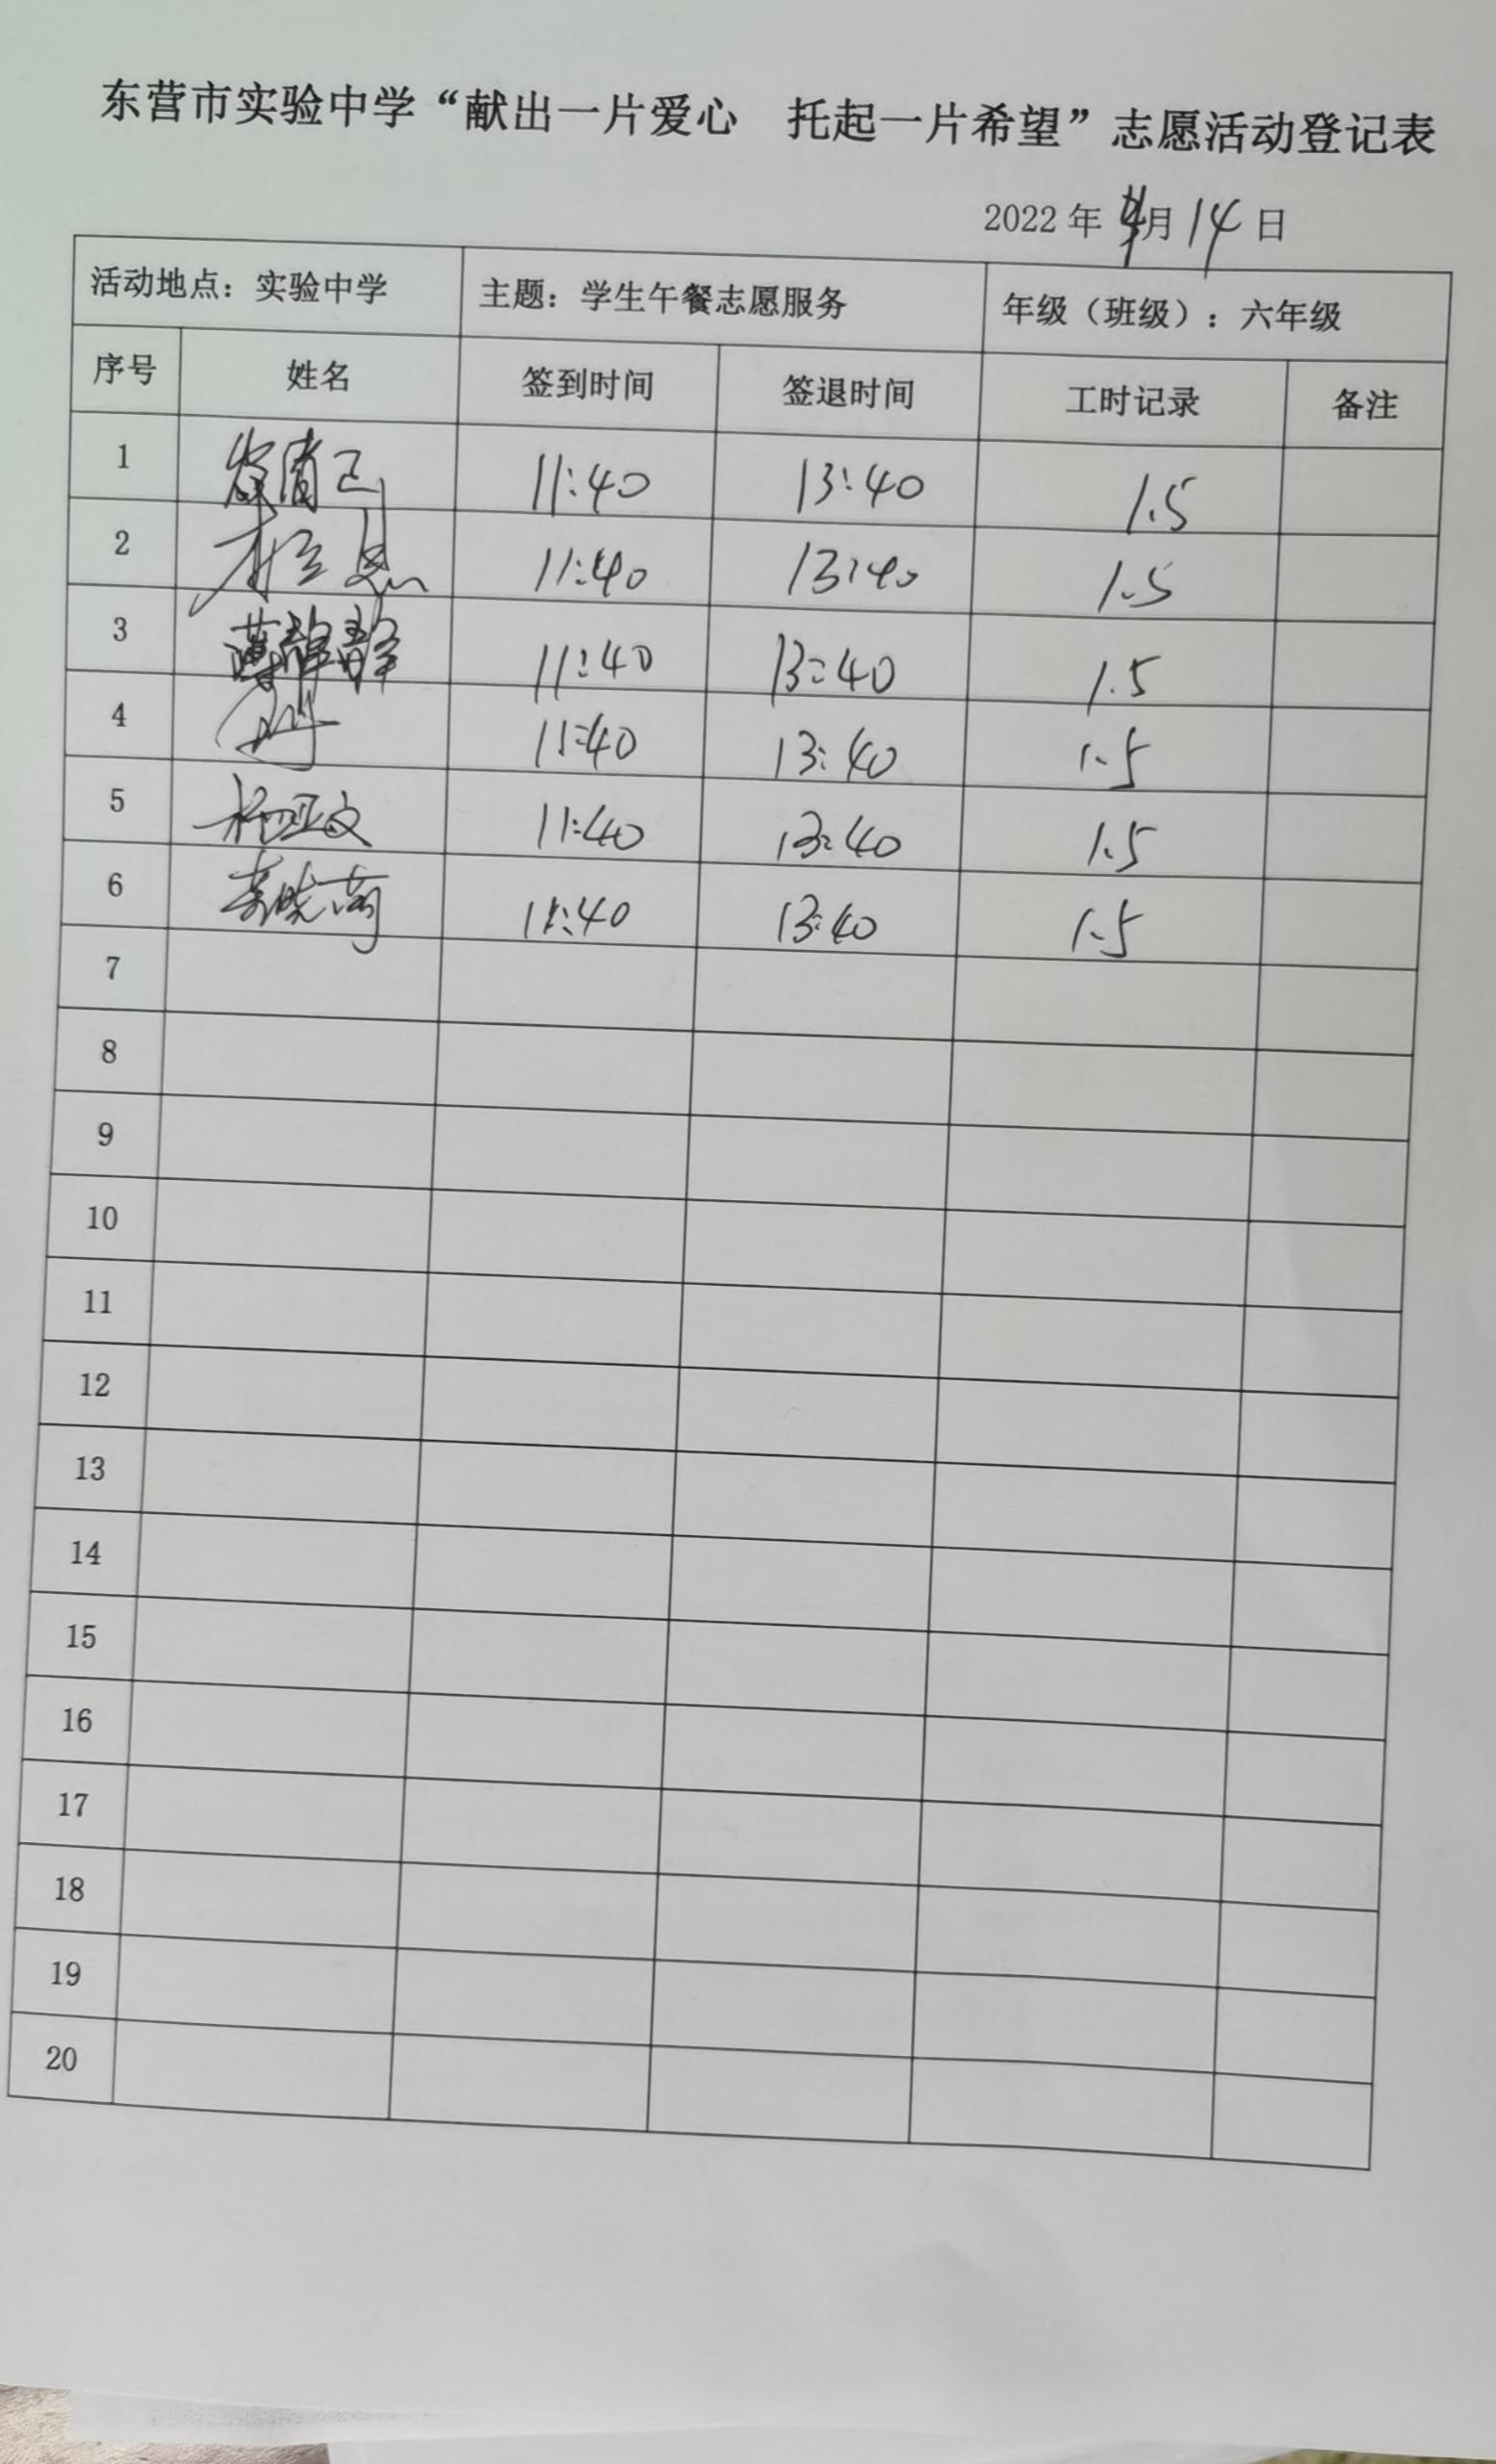 东营市实验中学“献出一片爱心 托起一片希望”志愿活动登记表
2022 年 月 14 日
活动地点：实验中学 主题：学生午餐志愿服务 年级（班级）：六年级
序号 姓名 签到时间 签退时间 工时记录 备注
1 11:40 13:40 1.5
2 11:40 13:40 1.5
3 薄静静 11:40 13:40 1.5
4 11:40 13:40 1.5
5 杨亚文 11:40 13:40 1.5
6 11:40 13:40 1.5
7
8
9
10
11
12
13
14
15
16
17
18
19
20